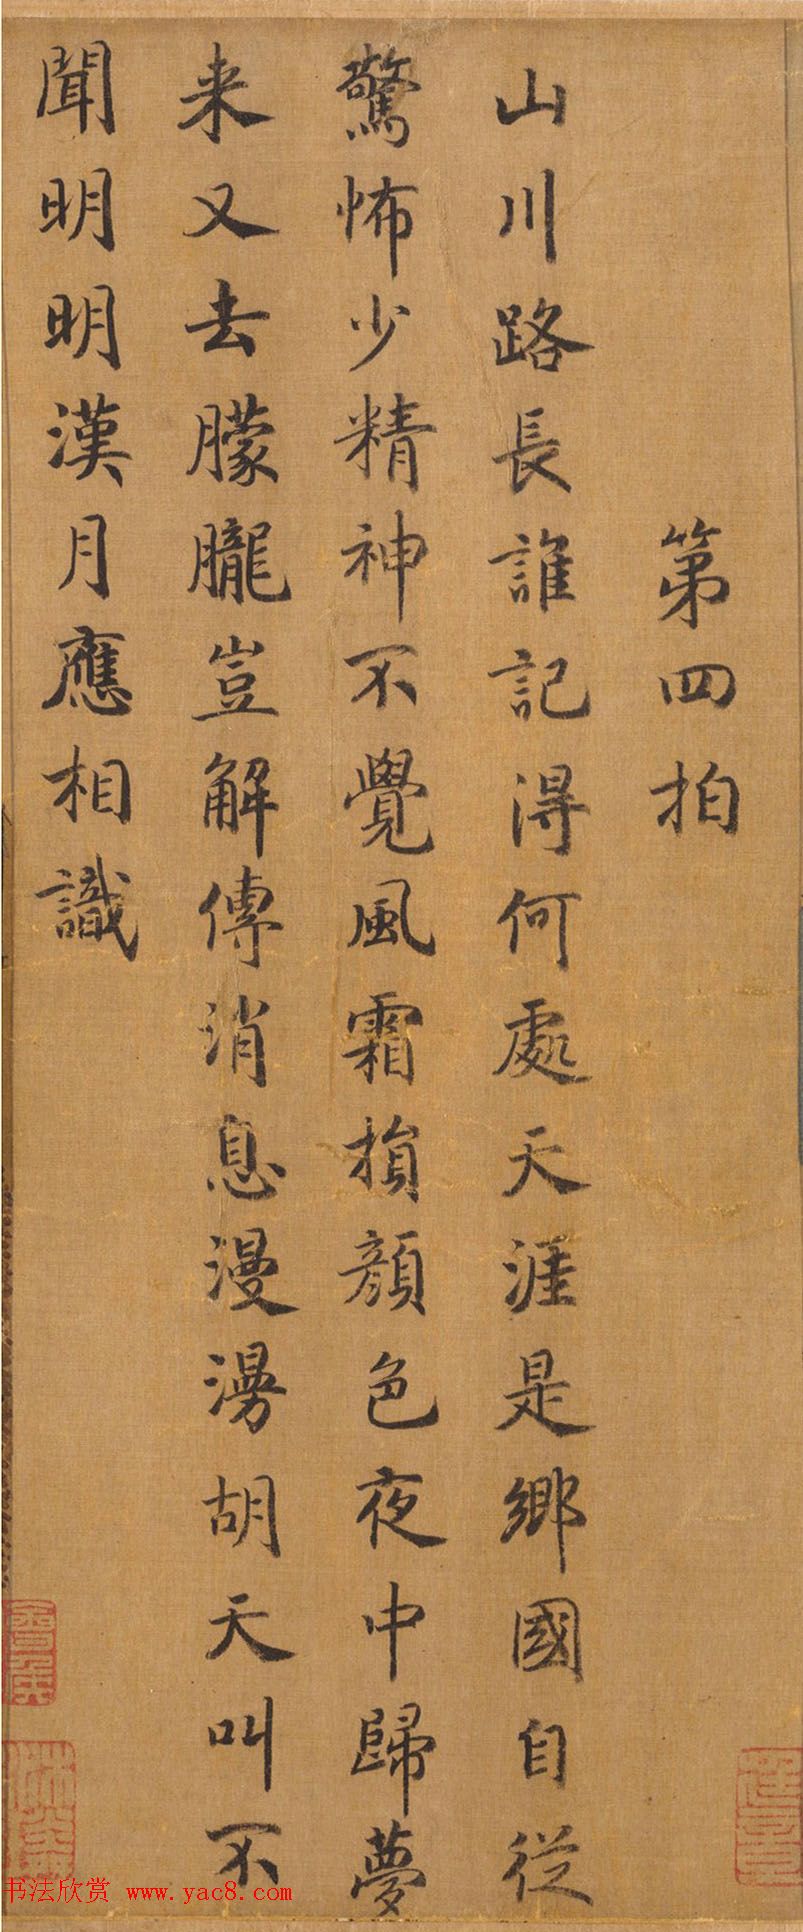 第四拍
山川路長誰記得何處天涯是鄉國自從
驚怖少精神不覺風霜損顏色夜中歸夢
来又去朦朧豈解傳消息漫漫胡天叫不
聞明明漢月應相識
书法欣赏 www.yac8.com